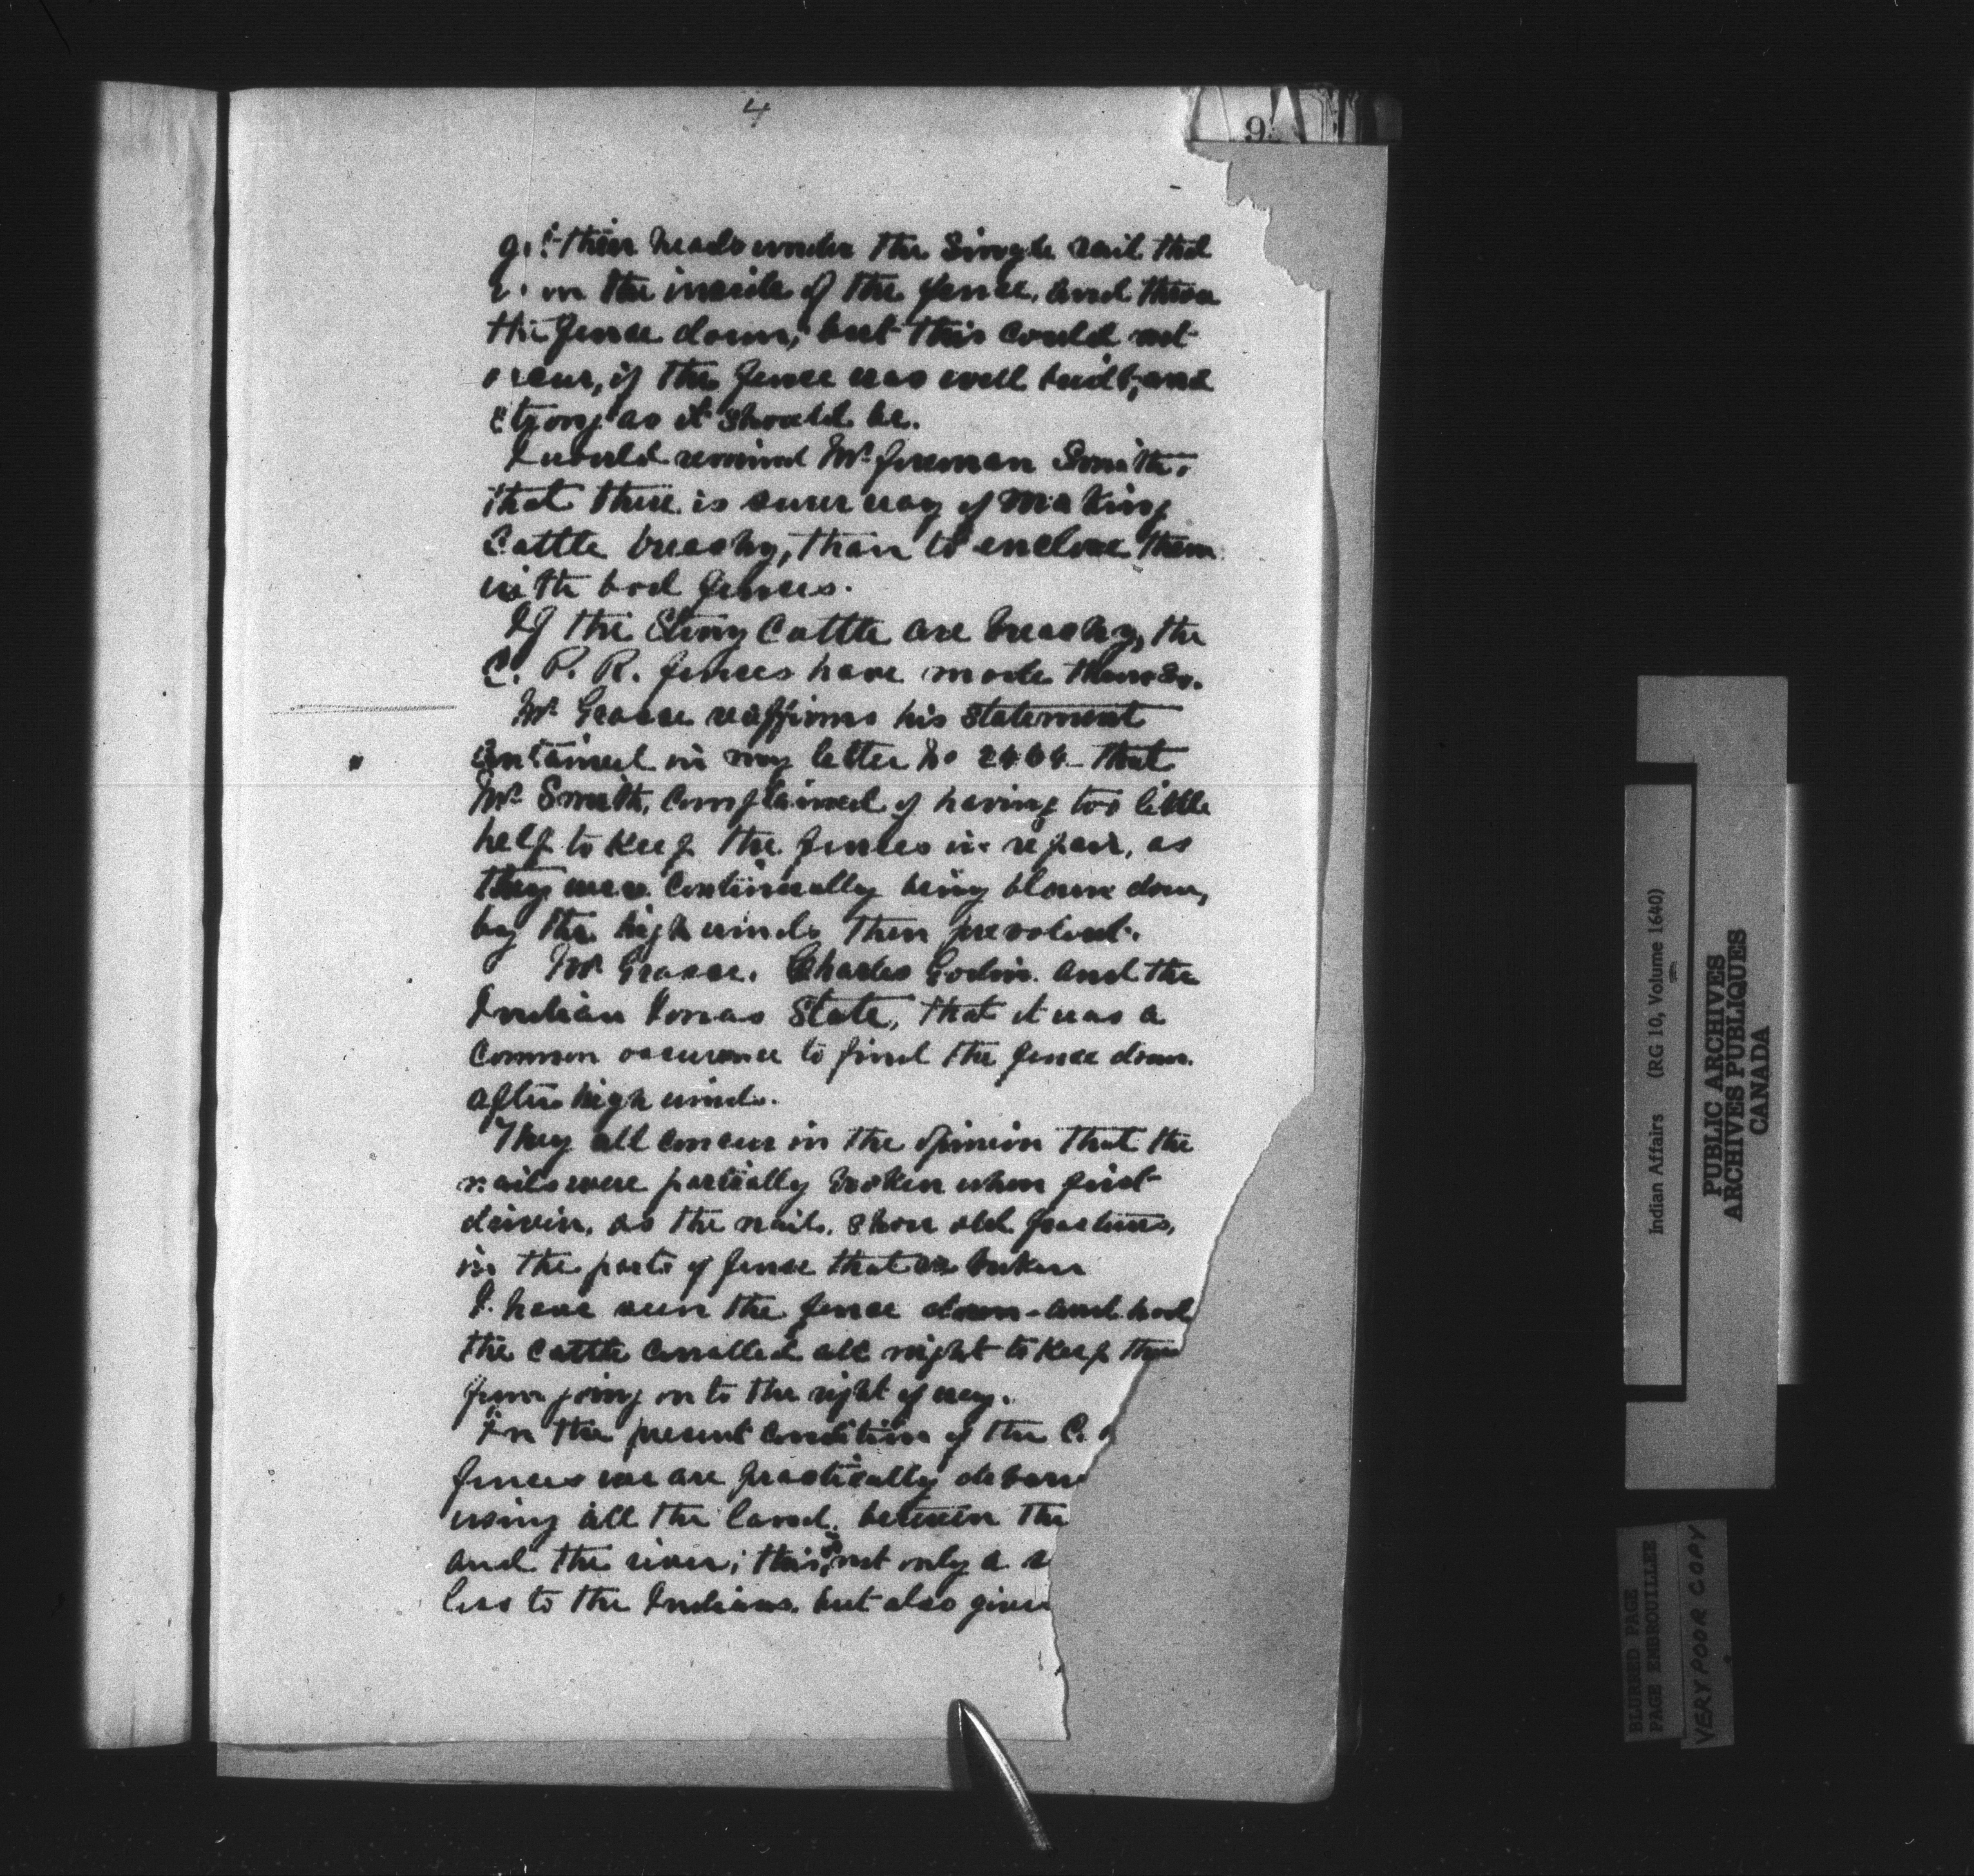 4
9
get their heads under the Single rail that
is on the inside of the fence, and throw
the fence down; but this could not
occur, if the fence was well built, and
strong as it should be.
I would remind Mr. foreman Smith,
that there is surer way of making
Cattle breachy, than to enclose them
with bad fences.
If the Stony Cattle are breachy, the
C. P. R. fences have made them so.
Mr. Grasse reaffirms his statement
contained in my letter No 2464 - that
Mr. Smith, Complained of having too little
help to keep the fences in repair, as
they were Continually being blown down,
by the high winds then prevalent.
Mr Grasse. Charles Godin. and the
Indian Jonas State, that it was a
Common occurence to find the fence down
after high winds.
They all concur in the opinion that the
nails were partially broken when first
driven, as the nails, show old fractures,
in the parts of fence that is broken
I have seen the fence down - and had
the cattle corralled all night to keep them
from going on to the right of way.
In the present Condition of the C.
fences we are practically debarr
using all the land, between the
and the river; this is not only a
loss to the Indians, but also gives
Indian Affairs (RG 10, Volume 1640)
PUBLIC ARCHIVES
ARCHIVES PUBLIQUES
CANADA
BLURRED PAGE
PAGE EMBROUILLEE
VERY POOR COPY